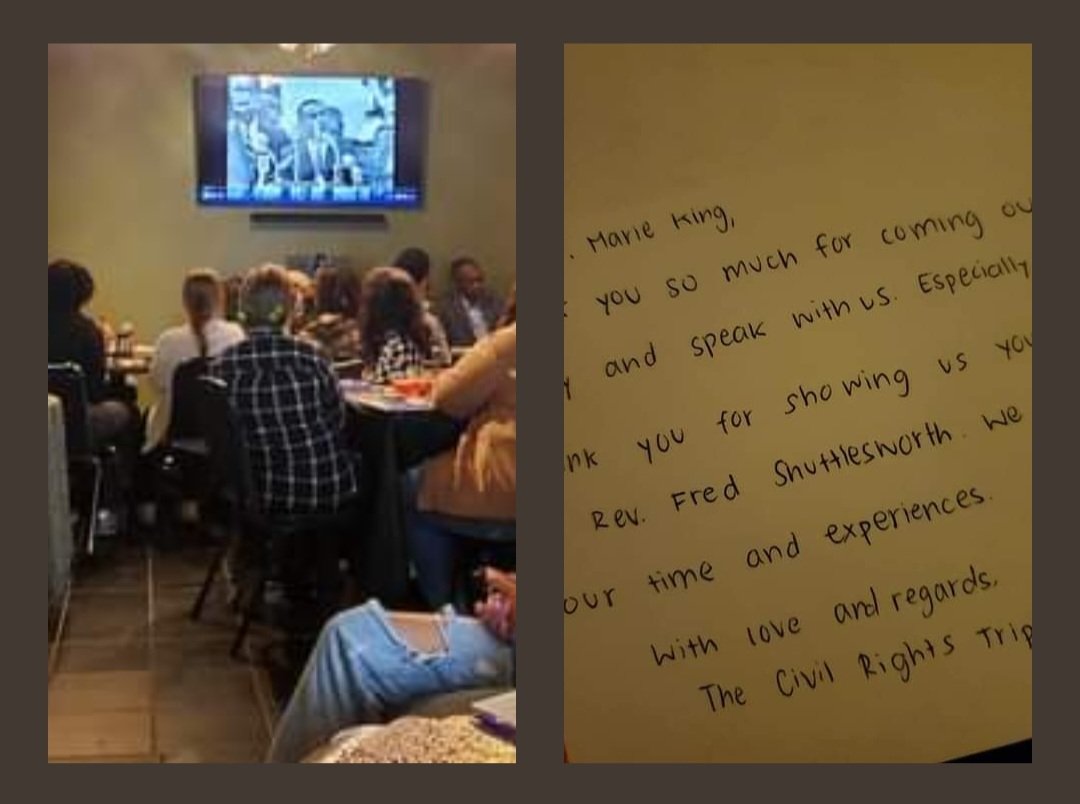 . Marie King,
you so much for coming ou
and speak with us. Especially
nk you for showing us you
Rev. Fred Shuttlesworth. We
our time and experiences.
With love and regards,
The Civil Rights Trip